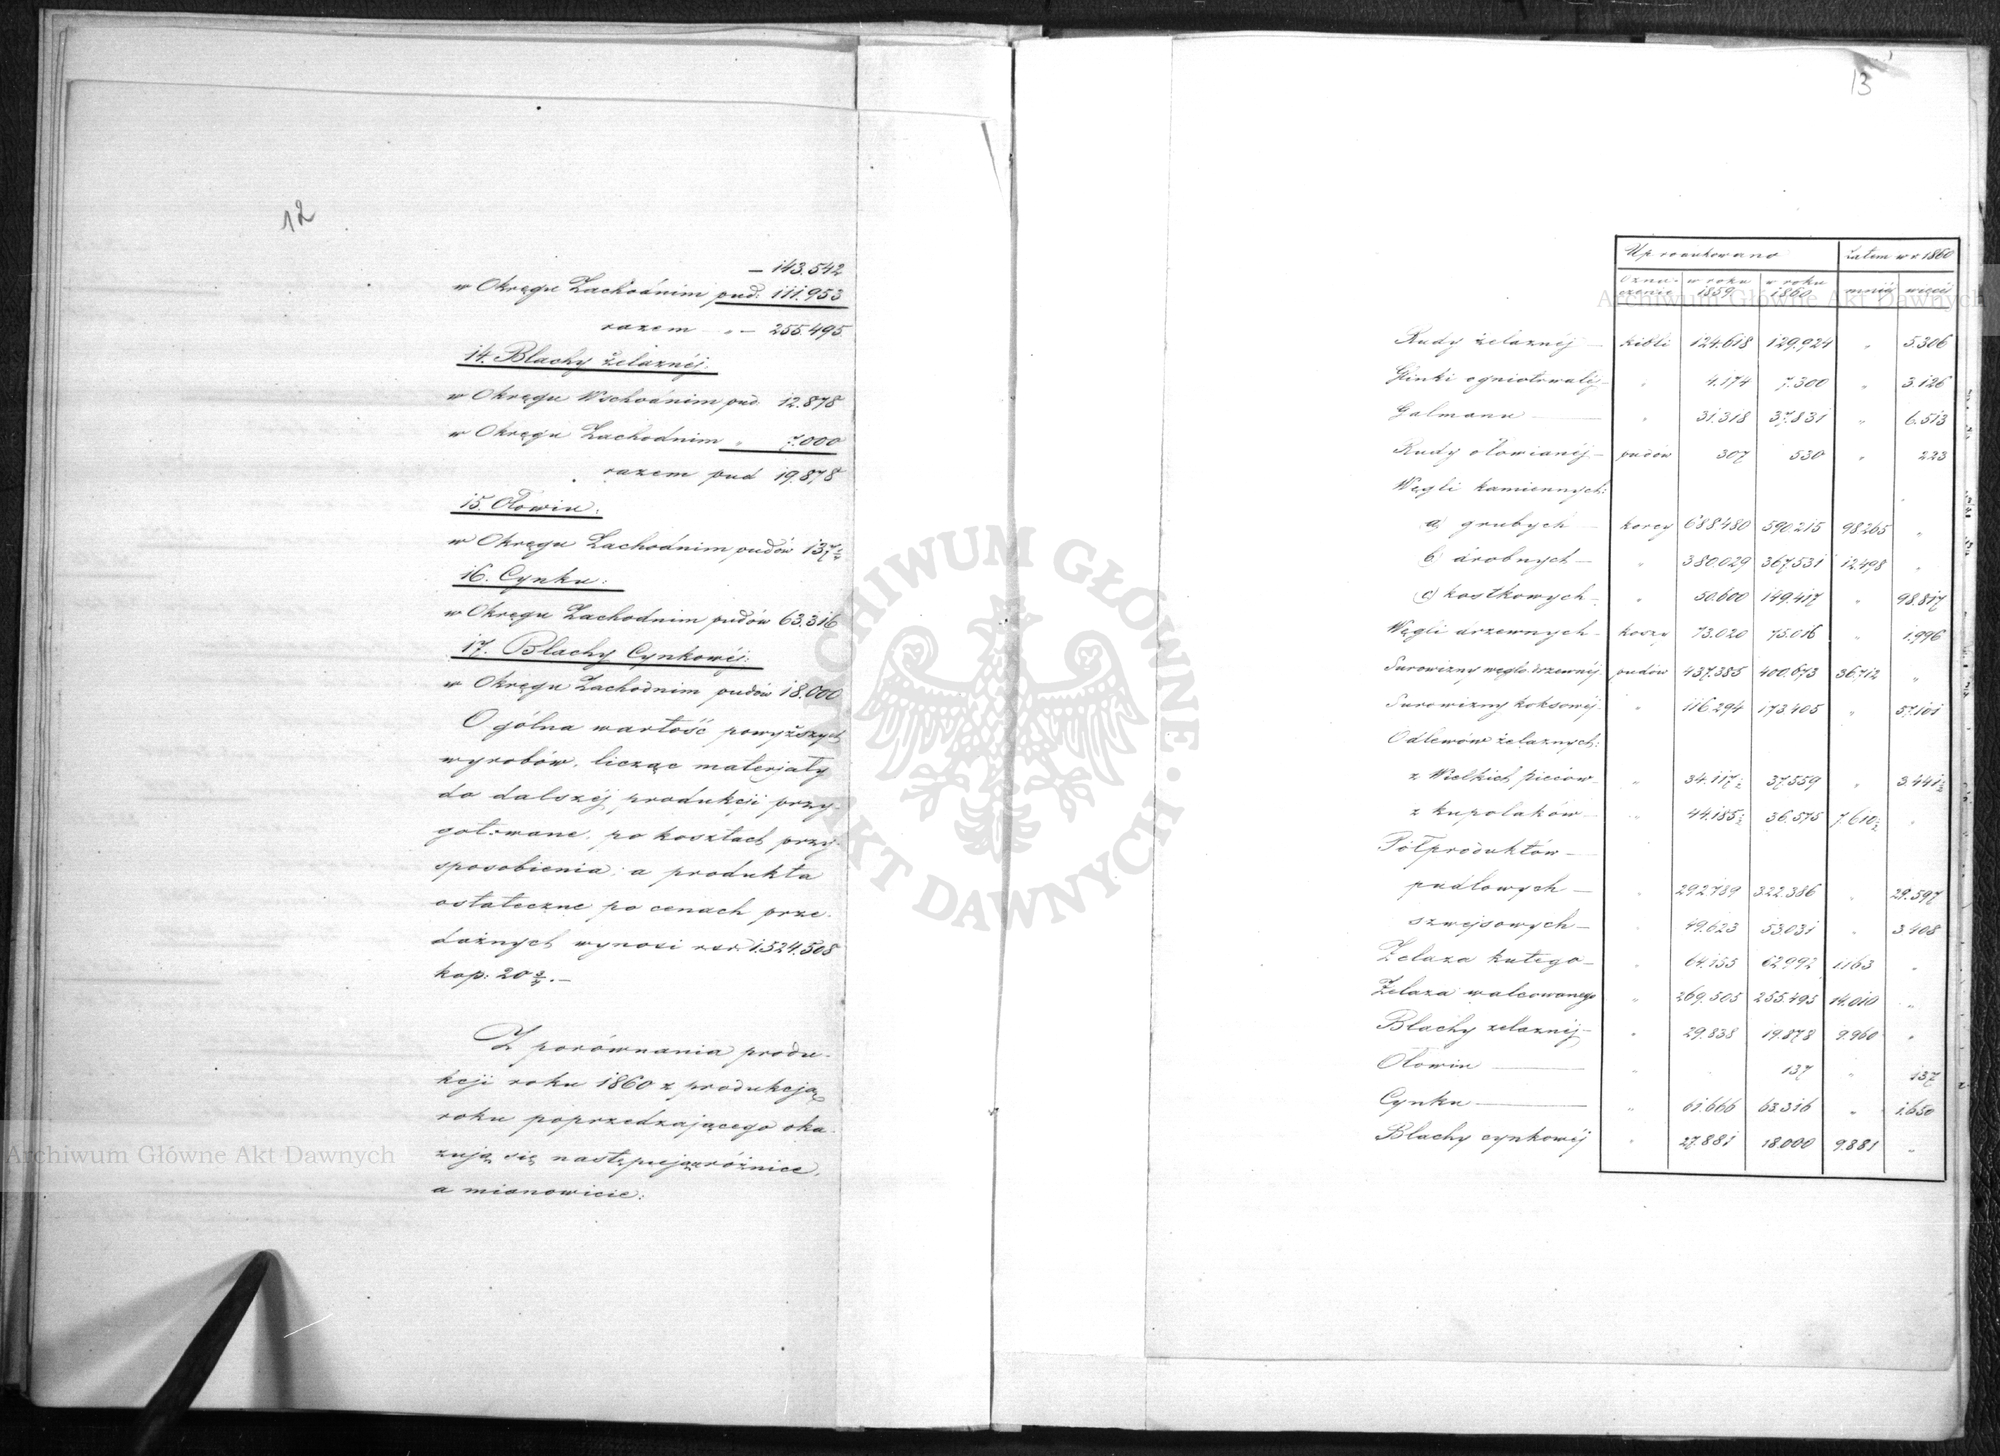 12
— 143.542
w Okręgu Zachodnim pud: 111.953
razem — „ — 255.495.
14. Blachy żelaznéj:
w Okręgu Wschodnim pud. 12.878
w Okręgu Zachodnim „ 7.000
razem pud 19.878
15. Ołowiu:
w Okręgu Zachodnim pudów 137½
16. Cynku:
w Okręgu Zachodnim pudów 63.316
17. Blachy Cynkowéj:
w Okręgu Zachodnim pudów 18.000
Ogólna wartość powyższych
wyrobów, licząc materjały
do dalszéj produkcji przy-
gotowane, po kosztach przy-
sposobienia; a produkta
ostateczne po cenach prze-
dażnych wynosi rsr. 1.524.508
kop: 20¾.—
Z porównania produ-
kcji roku 1860 z produkcją
roku poprzedzającego oka-
zują się następujące różnice,
a mianowicie:
13
Uprodukowano Zatem w r 1860
Ozna- czenie w roku 1859 w roku 1860 mniéj więcéj
Rudy żelaznéj — kibli 124.618 129.924 „ 5.306
Glinki ogniotrwałéj — „ 4.174 7.300 „ 3.126
Galmanu — „ 31.318 37.831 „ 6.513
Rudy ołowianéj — pudów 307 530 „ 223
Węgli kamiennych:
a) grubych — korcy 688.480 590.215 98.265 „
b) drobnych — „ 380.029 367.531 12.498 „
c) kostkowych — „ 50.600 149.417 „ 98.817
Węgli drzewnych — koszy 73.020 75.016 „ 1.996
Surowizny węglo drzewnéj pudów 437.385 400.673 36.712 „
Surowizny koksowéj „ 116.294 173.405 „ 57.101
Odlewów żelaznych:
z Wielkich pieców — „ 34.117½ 37.559 „ 3.441½
z kupolaków — „ 44.185½ 36.575 7.610½ „
Półproduktów —
pudłowych — „ 292.789 322.386 „ 29.597
szwejsowych — „ 49.623 53.031 „ 3.408
Żelaza kutego — „ 64.155 62.992 1.163 „
Żelaza walcowanego „ 269.505 255.495 14.010 „
Blachy żelaznéj — „ 29.838 19.878 9.960 „
Ołowiu — „ 137 „ 137
Cynku — „ 61.666 63.316 „ 1.650
Blachy cynkowéj „ 27.881 18.000 9.881 „
ARCHIWUM GŁÓWNE AKT DAWNYCH
Archiwum Główne Akt Dawnych
Archiwum Główne Akt Dawnych